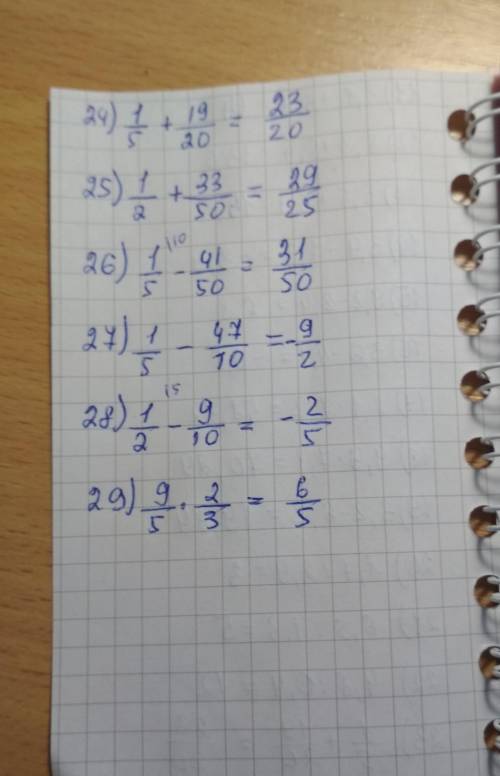 24) 1/5 + 19/20 = 23/20
25) 1/2 + 33/50 = 29/25
26) 1/5 \10 - 41/50 = 31/50
27) 1/5 - 47/10 = -9/2
28) 1/2 \5 - 9/10 = -2/5
29) 9/5 · 2/3 = 6/5